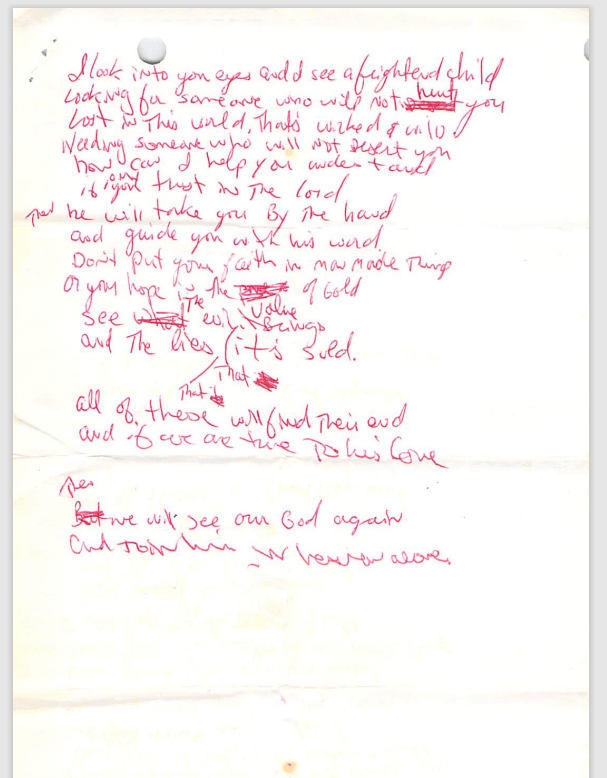 I look into you eyes and I see a frightend child
Looking for someone who will not hurt you
Lost in This world, That's wicked & wild
Needing someone who will not desert you
how can I help you understand
if you trust in The Lord
Then he will take you By The hand
and guide you with his word
Don't put your faith in man made Things
Or you hope in the of Gold
see The evil Value Brings
and The lies That it's sold.
all of these will find Their end
and if we are true To his Love
Then
we will see our God again
And Join him in heaven above.